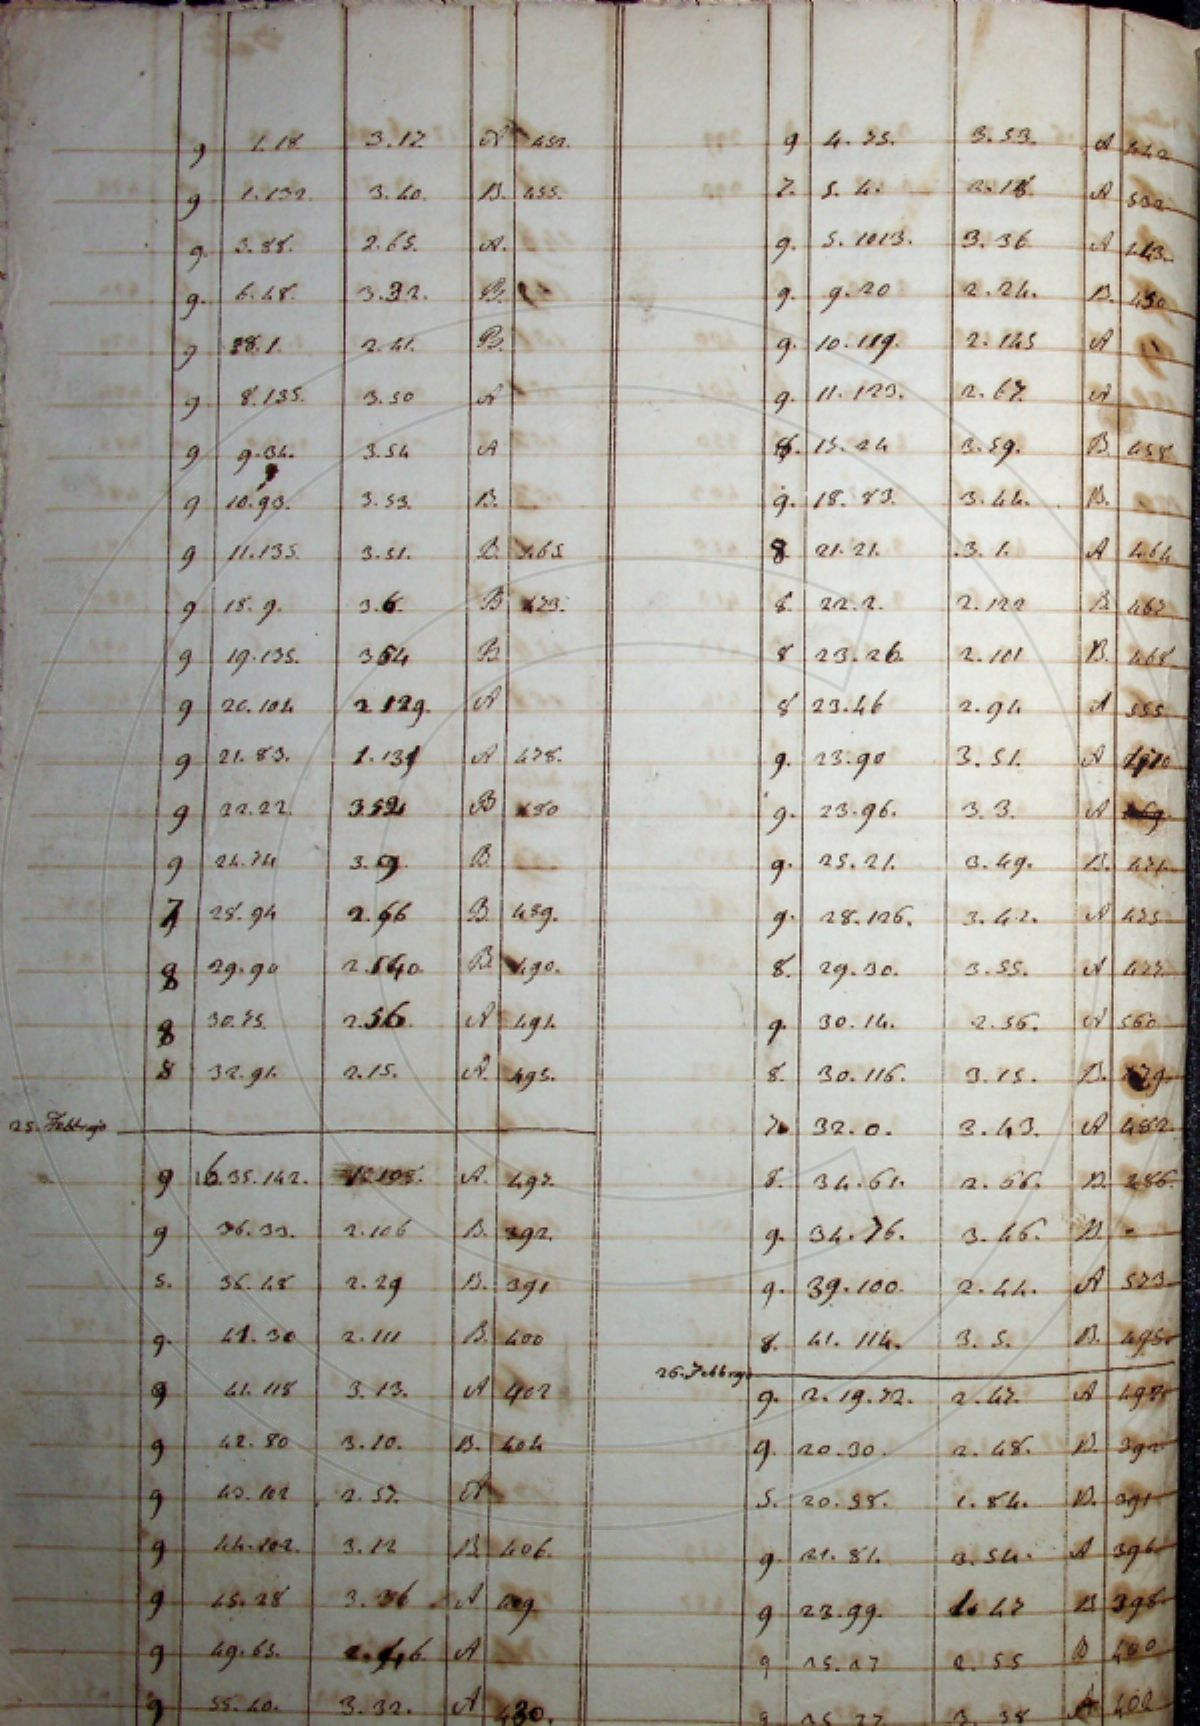 g 1.18 3.12 A 451.
g 1.132. 3.40. B. 455.
g. 3.88. 2.65. A.
g. 6.48. 3.32. B.
g 2.41. B.
g 8.135. 3.50 A
g 9.34. 3.54 A
g 10.93. 3.53. B.
g 11.135. 3.51. B. 465
g 18.9. 3.6. B 473.
g 19.135. 3.54 B
g 20.104 2.129. A
g 21.83. 1.131 A 478.
g 22.22. B 480
g 24.74 3.9. B
7 28.94 2.66 B. 489.
8 29.90 B. 490.
8 30.75. 2.56. A 491.
8 32.91. 2.15. A. 495.
25. Febbrajo
g 35.142. A. 497.
g 36.33. 2.106 B. 392.
5. 36.48 2.29 B. 391
g. 41.30 2.111 B. 400
g 41.118 3.13. A 402
g 42.80 3.10. B. 404
g 43.102 2.57. A
g 44.102. 3.12 B. 406.
g 45.28 3.36 A 409
g 49.65. A
g 55.40. 3.32. A 430.
g 4.75. 3.53. A 442
7. 5.4. 2.18 A 532
g. 5.1013. 3.36 A 443.
g. 9.20 2.24. B. 450
g. 10.119. 2.145 A
g. 11.123. 2.67. A
8. 15.24 3.59. B. 458
g. 18.83. 3.44. B.
8 21.21. 3.1. A 464
8. 22.2. 2.122 B 467
8 23.26. 2.101 B. 468
8 23.46 2.94 A 555
g. 23.90 3.51. A
g. 23.96. 3.3. A 469
g. 25.21. 3.49. B. 471.
g. 28.126. 3.42. A 475
8. 29.30. 3.55. A 477.
g. 30.14. 2.56. A 560
8. 30.116. 3.15. B. 479.
7. 32.0. 3.43. A 482.
8. 34.61. 2.66. B. 486.
g. 34.76. 3.46. B. -
g. 39.100. 2.44. A 573
8. 41.114. 3.5. B. 495
26. Febbrajo
g. 2.19.72. 2.47. A 497
g. 20.30. 2.48. B. 392
5. 20.58. 1.84. B. 391
g. 21.81. 3.54. A 396
g 23.99. 1.47 B 398
g 25.27 2.55 B 400
g 25.77 3.38 A 402